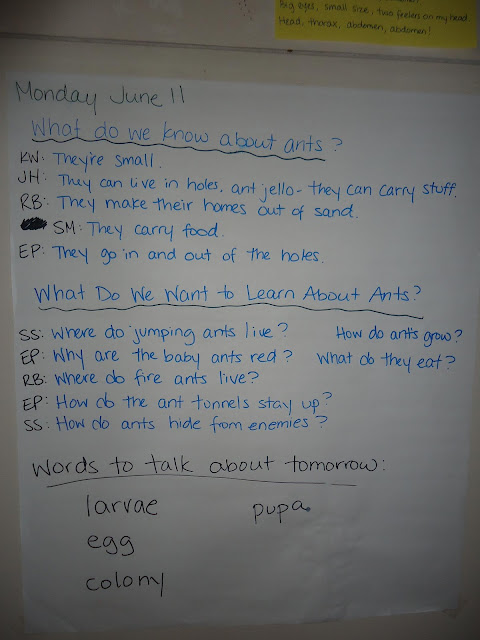 Big eyes, small size, two feelers on my head.
Head, thorax, abdomen, abdomen!
Monday June 11
What do we know about ants?
KW: They're small.
JH: They can live in holes, ant jello - they can carry stuff.
RB: They make their homes out of sand.
SM: They carry food.
EP: They go in and out of the holes.
What Do We Want to Learn About Ants?
SS: Where do jumping ants live? How do ants grow?
EP: Why are the baby ants red? What do they eat?
RB: Where do fire ants live?
EP: How do the ant tunnels stay up?
SS: How do ants hide from enemies?
Words to talk about tomorrow:
larvae pupa
egg
colony